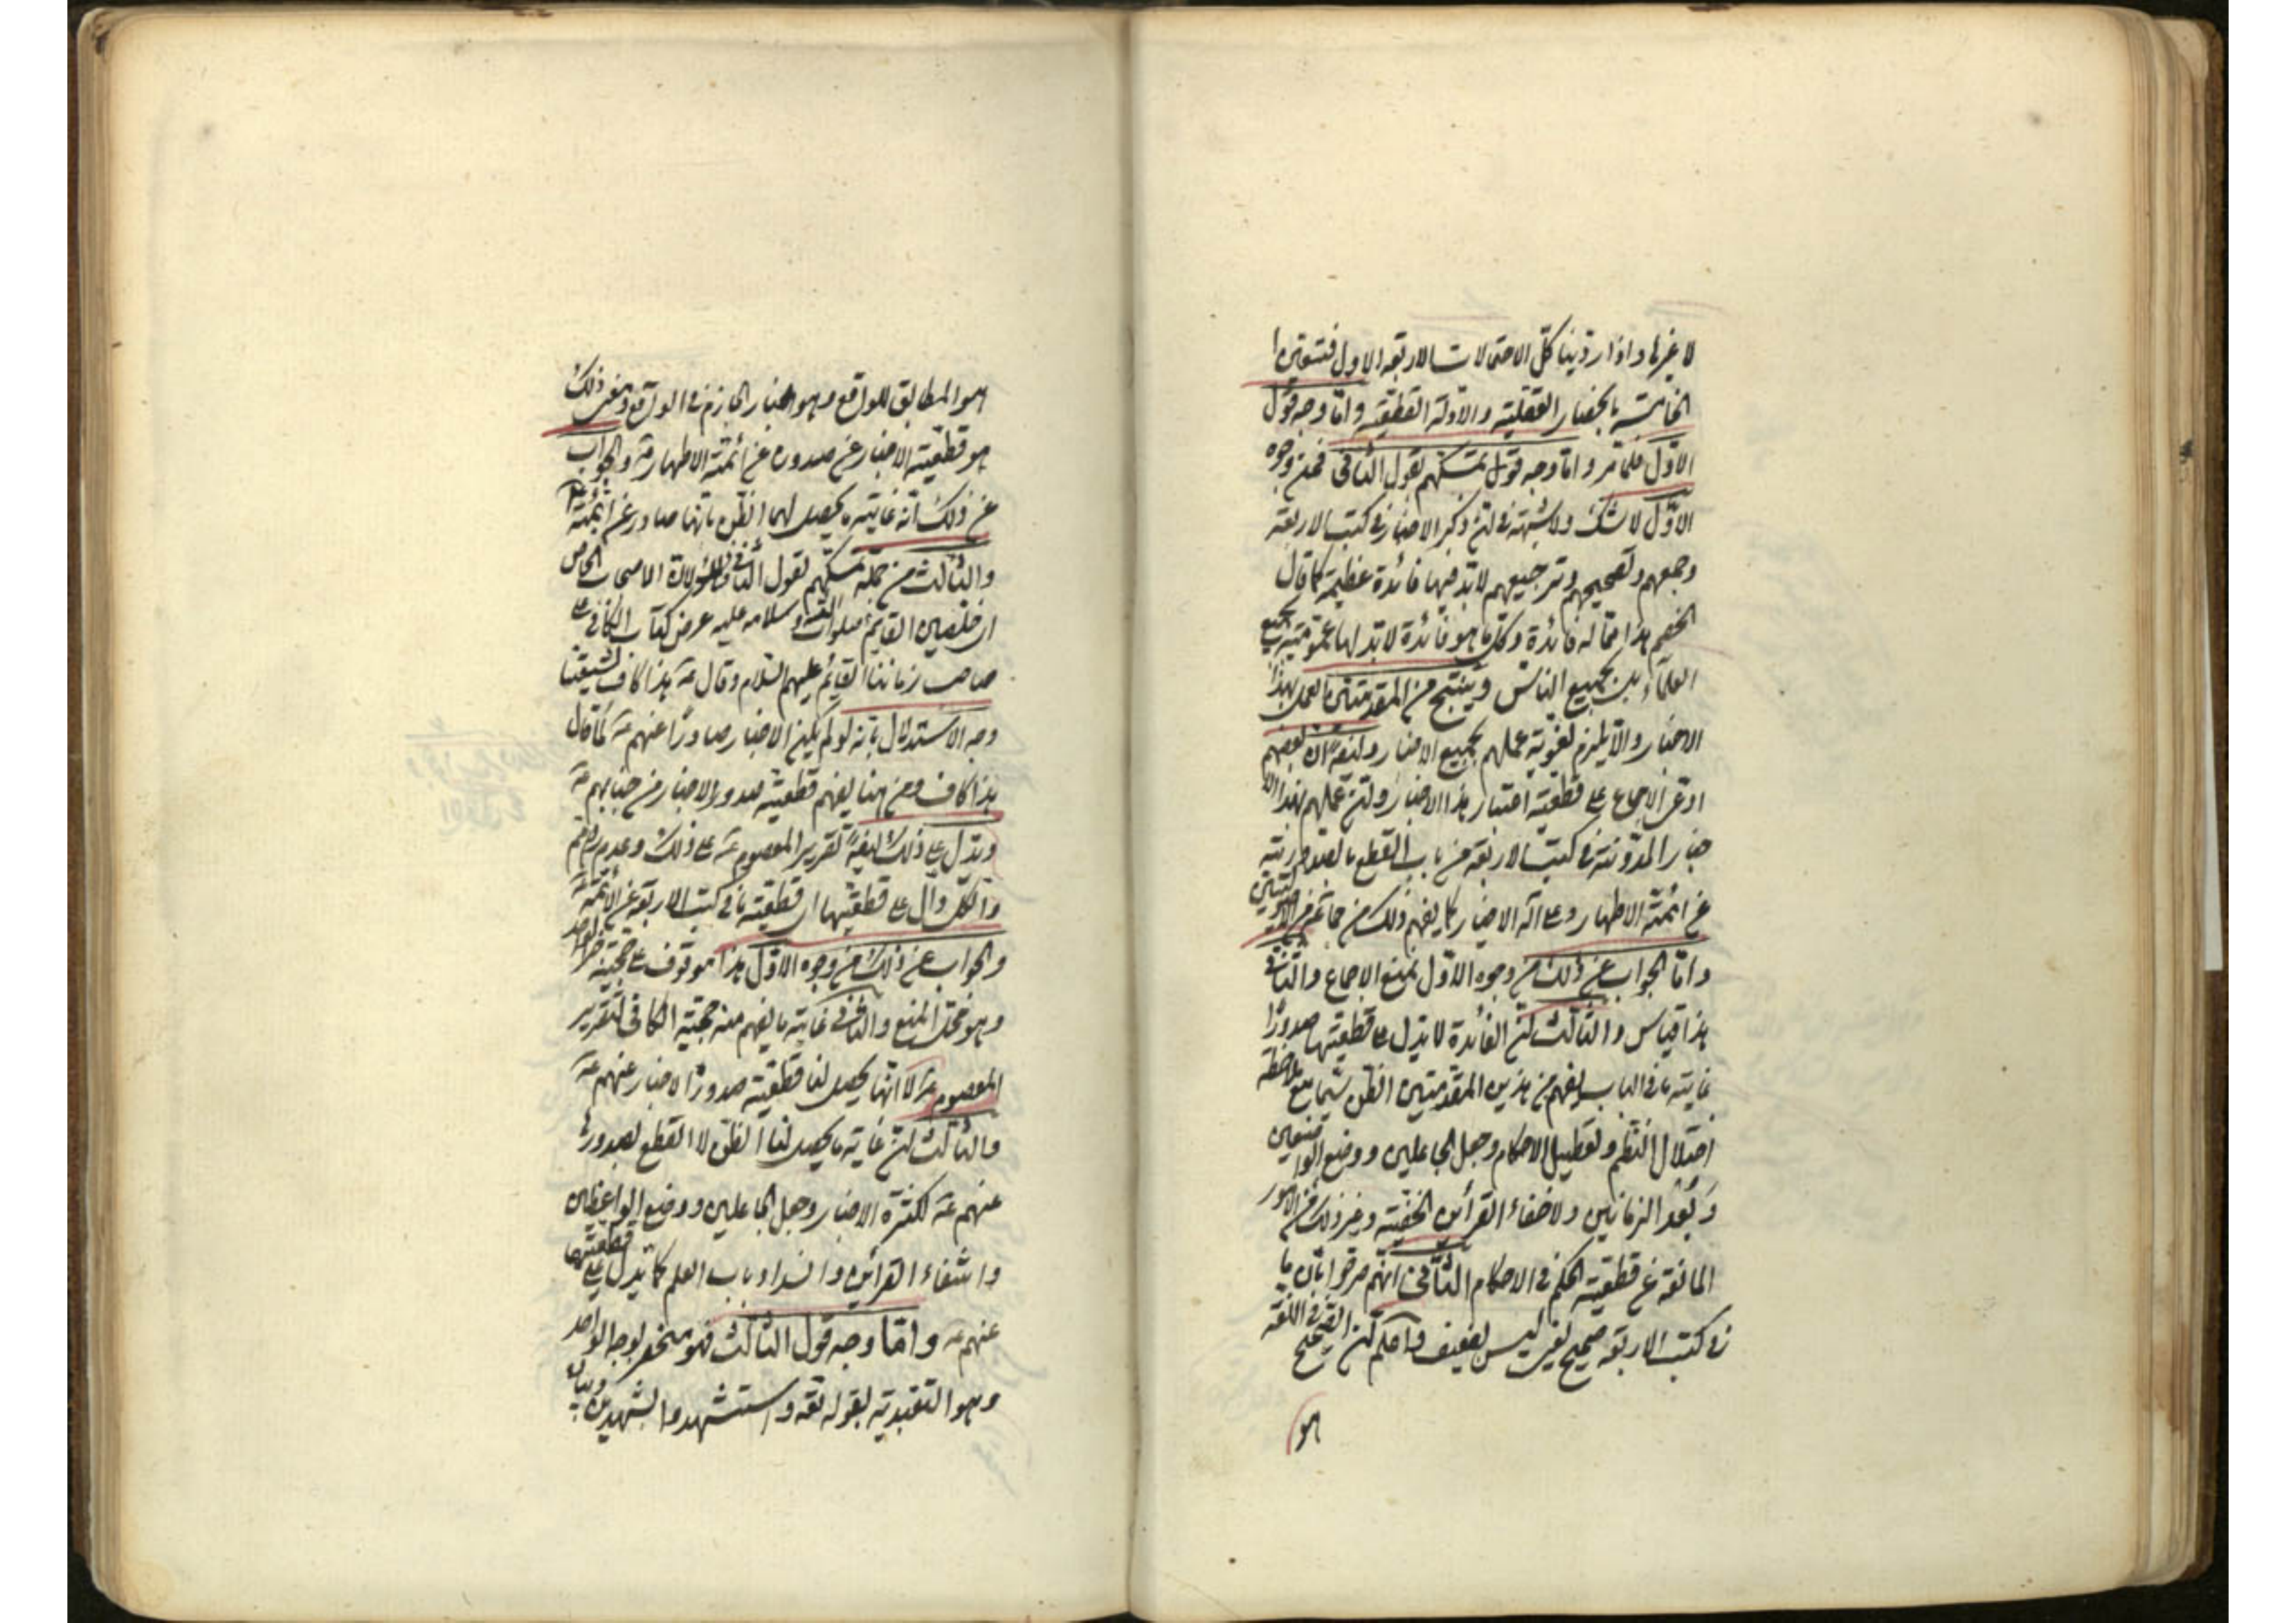 لا غيرها واذا رددنا كل الاحتمالات الاربعة الاول فتعين
الخامسة بالحصار العقلية والادلة القطعية واما وجه قول
الاول فلما مر واما وجه قول تمسكهم لقول الثاني فمن وجوه
الاول لا شك ولا شبهة في ان ذكر الاخبار في كتب الاربعة
وجمعهم وتصحيحهم وترجيحهم لا بد فيها فائدة عظيمة كما قال
الخصم هذا مما له فائدة وكل ما هو فائدة لا بد لها بجميع
العلماء بل بجميع الناس وينتج من المقدمتين العمل بهذا
الاخبار والا يلزم لغوية عملهم بجميع الاخبار وايضا ان بعضهم
ادعى الاجماع على قطعية اعتبار هذا الاخبار وان عملهم بهذا الا
خبار المدونة في كتب الاربعة من باب القطع بالصدور
عن ائمة الاطهار وعلى اله الاخيار كما يفهم ذلك من
واما الجواب عن ذلك من وجوه الاول بمنع الاجماع والثاني
هذا قياس والثالث ان الفائدة لا تدل على قطعيتها صدورا
غاية ما في الباب يفهم من هذين المقدمتين الظن سيما مع ملاحظة
اختلال النظم وتعطيل الاحكام وجعل الجاعلين ووضع الواضعين
وبعد الزمانين ولاخفاء القرائن الخفية وغير ذلك من الامور
المانعة عن قطعية الحكم في الاحكام الثاني انهم صرحوا بان ما
في كتب الاربعة صحيح يعني ليس بضعيف واعلم ان الصحيح في اللغة
هو
هو المطابق للواقع وهو اخبار الجازم في الواقع ومعنى ذلك
هو قطعية الاخبار عن صدوره عن ائمة الاطهار والجواب
عن ذلك انه غاية ما يحصل لهما الظن بانها صادر عن ائمة
والثالث من جملة تمسكهم لقول الثاني الاصحاب الخاص
القائم صلوات الله وسلامه عليه عرض كتاب الكافي على
صاحب زماننا القائم عليهم السلام وقال هذا كاف لشيعتنا
وجه الاستدلال بانه لو لم يكن الاخبار صادرا عنهم لما قال
هذا كاف ومن هنا يفهم قطعية صدور الاخبار من جنابهم
ويدل على ذلك ايضا تقرير المعصوم على ذلك وعدم
والكل دال على قطعيتها اي قطعية ما في كتب الاربعة عن الائمة
والجواب عن ذلك من وجوه الاول هذا موقوف على حجية خبر الواحد
وهو محل المنع والثاني غاية ما يفهم منه حجية الكافي لتقرير
المعصوم لا انها يحصل لنا قطعية صدور الاخبار عنهم
والثالث ان غاية ما يحصل لنا الظن لا القطع بصدورها
عنهم لكثرة الاخبار وجعل الجاعلين ووضع الواضعين
وانتفاء القرائن وانسداد باب العلم كما يدل على قطعيتها
عنهم واما وجه قول الثالث فهو منحصر بوجه الواحد
وهو التعبدية لقوله تعه واستشهدوا شهيدين وبيان